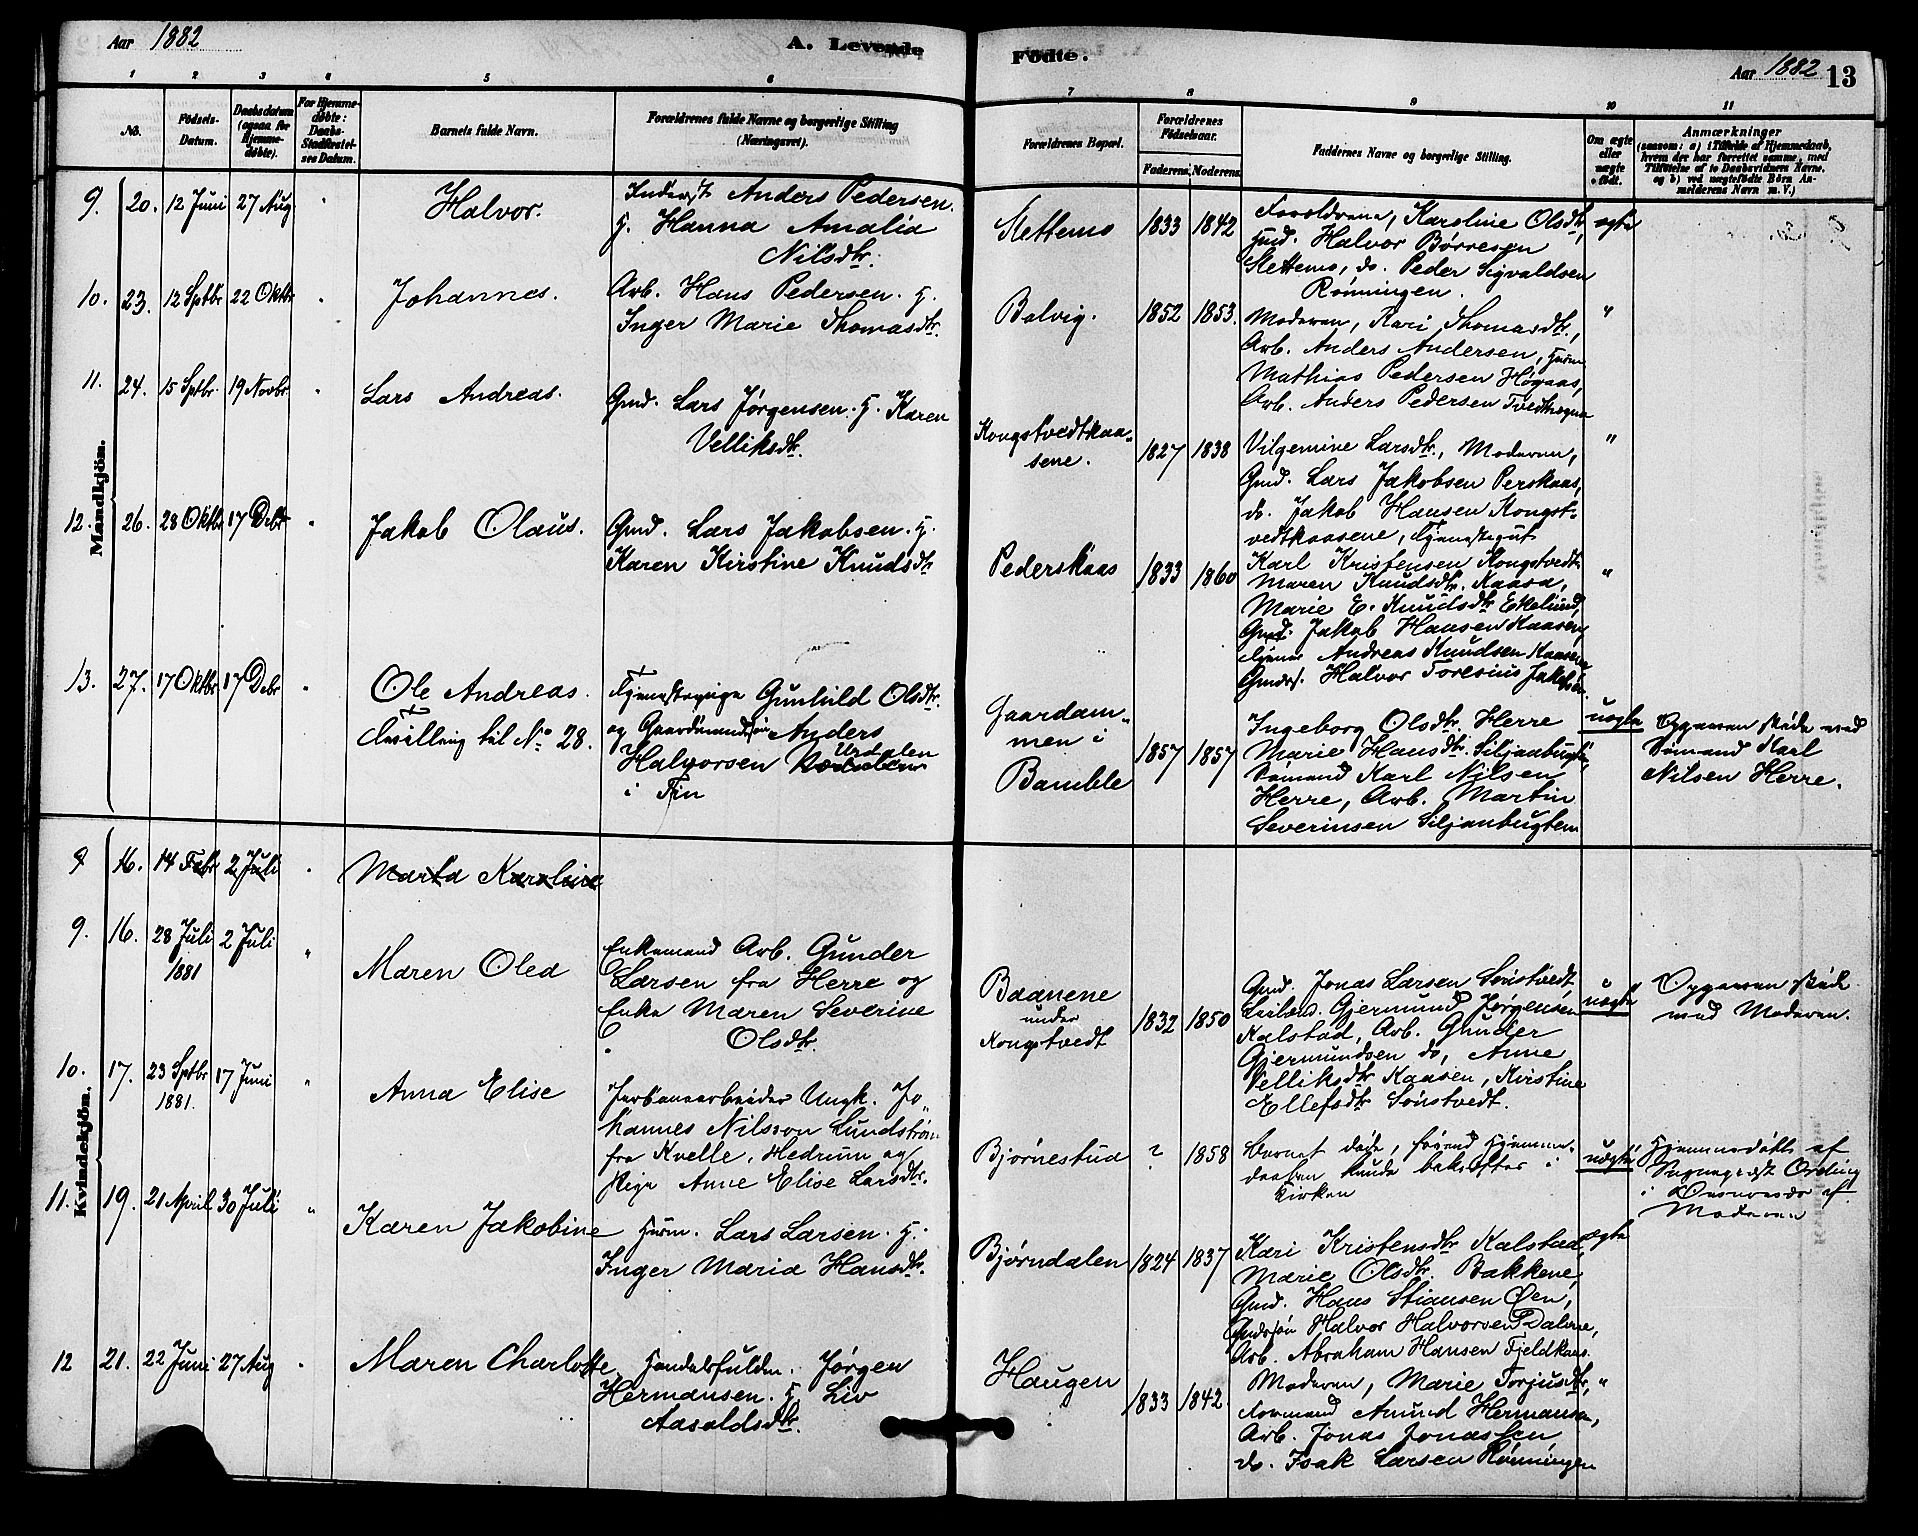 Aar 1882
A. Levende Födte.
Aar 1882 13
1 2 3 4 5 6 7 8 9 10 11
No.
Födsels-Datum.
Daabsdatum (ogsaa for Hjemme-døbte).
For Hjemme-døbte: Daabs-Stadfæstel-ses Datum.
Barnets fulde Navn.
Forældrenes fulde Navne og borgerlige Stilling (Næringsvei).
Forældrenes Bopæl.
Forældrenes Födselsaar.
Faderens. Moderens.
Faddernes Navne og borgerlige Stilling.
Om ægte eller uægte født.
Anmærkninger
(saasom: a) i Tilfælde af Hjemmedaab, hvem der har forrettet samme, med Tilföielse af to Daabsvidners Navne, og b) ved uægtefödte Börn An-melderens Navn m. V.)
Mandkjön.
9. 20. 12 Juni 27 Aug "
Halvor.
Inderst Anders Pedersen.
H. Hanna Amalia
Nilsdtr.
Slettemo 1833 1842
Forældrene, Karoline Olsdtr,
Gmd. Halvor Børresen
Slettemo, do. Peder Sigvaldsen
Rønningen.
ægte
10. 23. 12 Septbr 22 Oktbr "
Johannes.
Arb. Hans Pedersen. H.
Inger Marie Thomasdtr.
Bolvig. 1852 1853.
Moderen, Kari Thomasdtr.,
Arb. Anders Andersen, Husm
Mathias Pedersen Høgaas,
Arb. Anders Pedersen Tvedtøgna
"
11. 24. 15 Sptbr 19 Novbr "
Lars Andreas.
Gmd. Lars Jørgensen. H. Karen
Velliksdtr.
Kongstvedtkaa-
sene. 1827 1838
Vilgemine Larsdtr., Moderen,
Gmd. Lars Jakobsen Perskaas,
do. Jakob Hansen Kongst-
vedtkaasene, Tjenestegut
Karl Kristensen Kongstvedt
"
12. 26. 28 Oktbr 17 Debr "
Jakob Olaus.
Gmd. Lars Jakobsen. H.
Karen Kirstine Knudsdtr
Pederskaas 1833 1860
Maren Knudsdtr. Kaasa,
Marie E. Knudsdtr Ekelund,
Gmd. Jakob Hansen Kaasen,
Tjener Andreas Knudsen Kaasene
Gmds. Halvor Toresius Jakobsen
"
13. 27. 17 Oktbr 17 Debr "
Ole Andreas.
Tvilling til No 28.
Tjenestepige Gunhild Olsdtr.
og Gaardmandssøn Anders
Halvorsen Urdalen
i Fin
Gaardam-
men i
Bamble 1857 1857
Ingeborg Olsdtr. Herre
Marie Hansdtr. Siljanbugten,
Sømand Karl Nilsen
Herre, Arb. Martin
Severinsen Siljanbugten
uægte
Opgaven skede med
Sømand Karl
Nilsen Herre.
Kvindekjön.
8 16. 14 Febr 2 Juli "
Marta Karoline
9. 16. 28 Juli 1881 2 Juli "
Maren Olea
Enkemand Arb. Gunder
Larsen fra Herre og
Enke Maren Severine
Olsdtr.
Baanene
under
Kongstvedt 1832 1850
Gmd. Jonas Larsen Sønstvedt
Leilænd. Gjermund Jørgensen
Kalstad, Arb. Gunder
Gjermundsen do, Anne
Velliksdtr Kaasen, Kirstine
Ellefsdtr Sønstvedt.
uægte
Opgaven skede
med Moderen.
10. 17. 23 Sptbr 1881. 17 Juni "
Anna Elise
Jerbanearbeider Ungk. Jo-
hannes Nilsson Lundstrøm
fra Kvelle, Hedrum og
Pige Anne Elise Larsdtr.
Bjørnestud ? 1858
Barnet døde, førend Hjemme-
daaben kunde bekræftes i
Kirken
uægte
Hjemmedøbt af
Sogneprest Ording
i
Moderen
11. 19. 21 April 30 Juli "
Karen Jakobine
Husm. Lars Larsen. H.
Inger Maria Hansdtr.
Bjørndalen 1824 1837
Kari Kristensdtr Kalstad,
Marie Olsdtr. Bakkene,
Gmd. Hans Stiansen Øen,
Gmdssøn Halvor Halvorsen Dalene,
Arb. Abraham Hansen Fjeldkaas.
ægte
12 21. 22 Juni 27 Aug "
Maren Charlotte
Handelsfuldm. Jørgen
Hermansen. H Liv
Aasoldsdtr.
Haugen 1833 1842.
Moderen, Marie Torjusdtr,
Formand Amund Hermansen,
Arb. Jonas Jonassen
do. Isak Larsen Rønningen
"